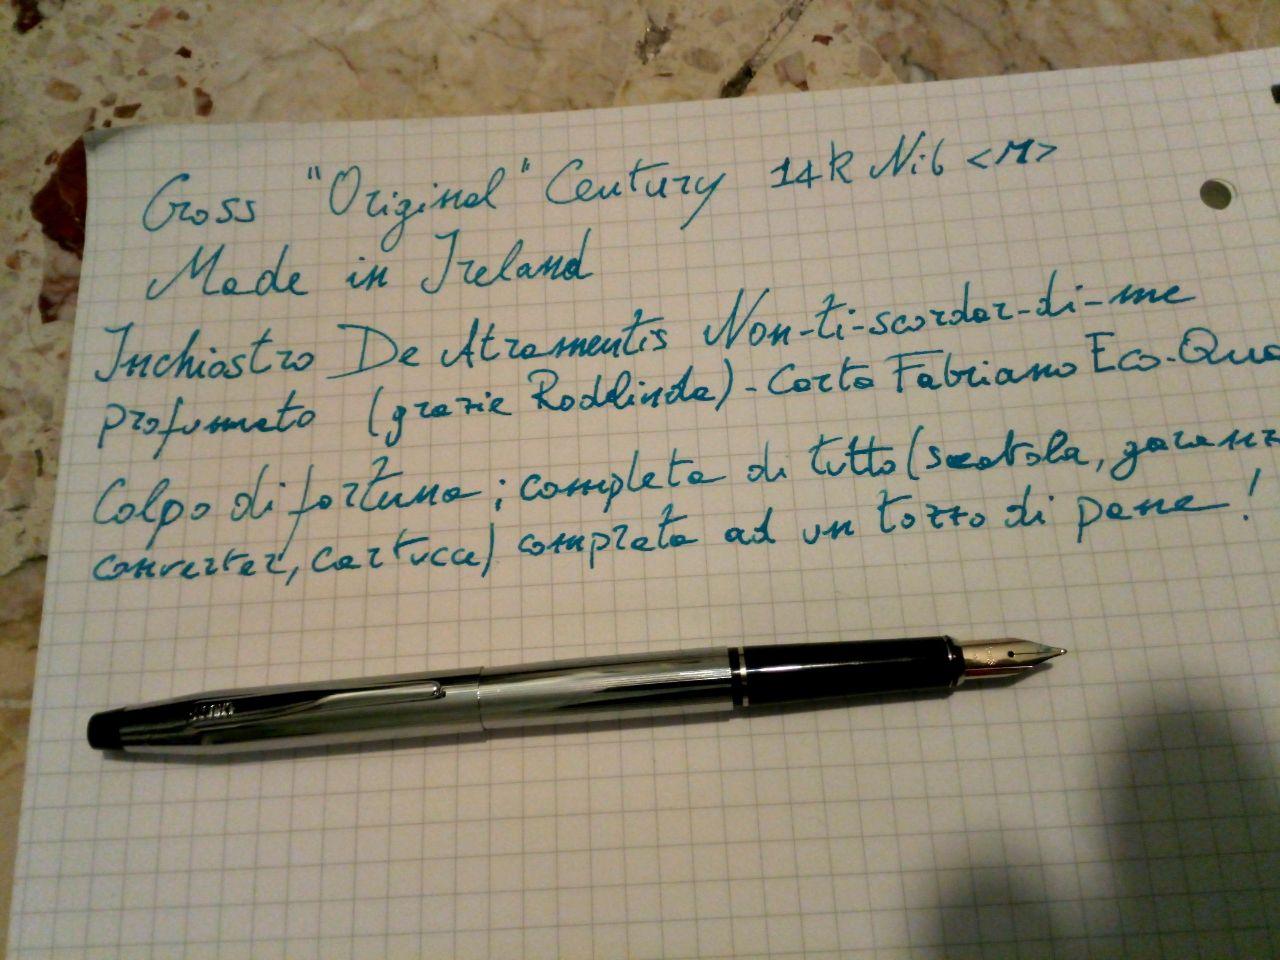 Cross "Original" Century 14k Nib <M>
Made in Ireland
Inchiostro De Atramentis Non-ti-scordar-di-me
profumato (grazie Roddlinda) - Carta Fabriano Eco-Qua
Colpo di fortuna; completa di tutto (scatola, garanz
converter, cartucce) comprata ad un tozzo di pane!